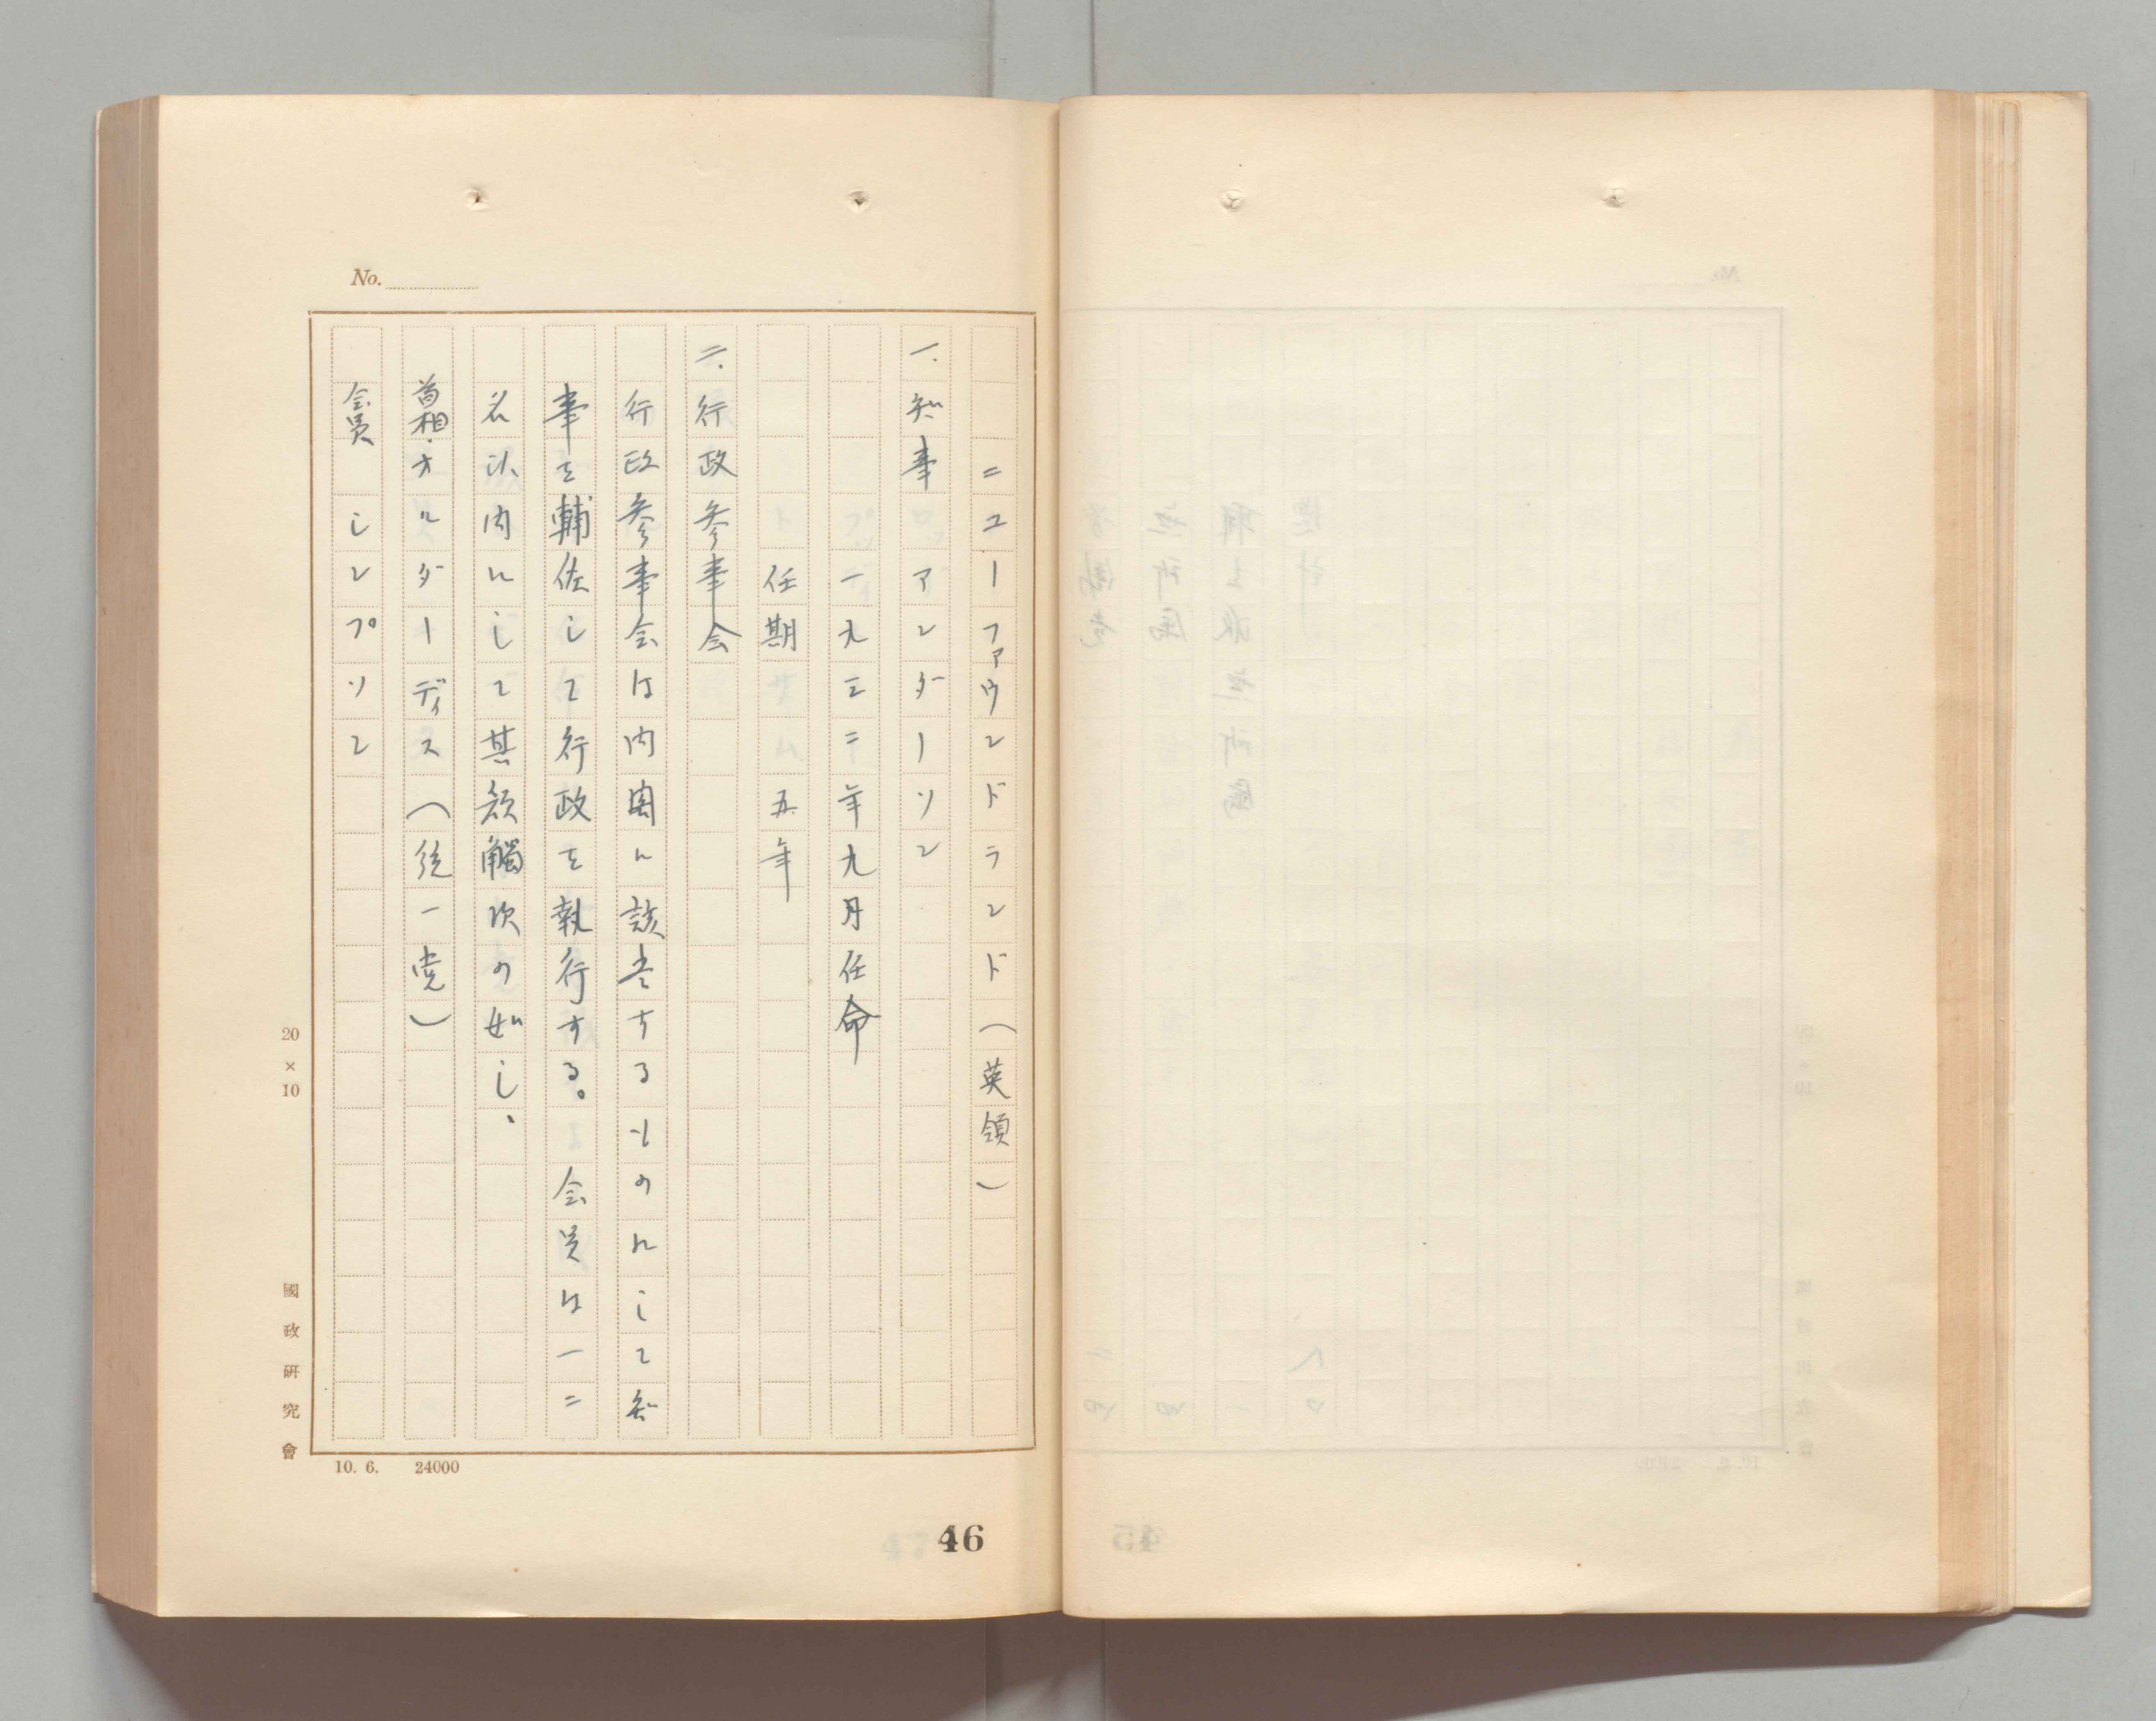 No.
ニューファウンドランド（英領）
一.知事 アンダーソン
一九三二年九月任命
任期 五年
二.行政参事会
行政参事会は内閣に該当するものにして知
事を輔佐して行政を執行する。会員は一二
名以内にして其顔觸次の如し、
首相.オルダーディス（統一党）
会員 シンプソン
20×10
國政研究會
10. 6. 24000
46